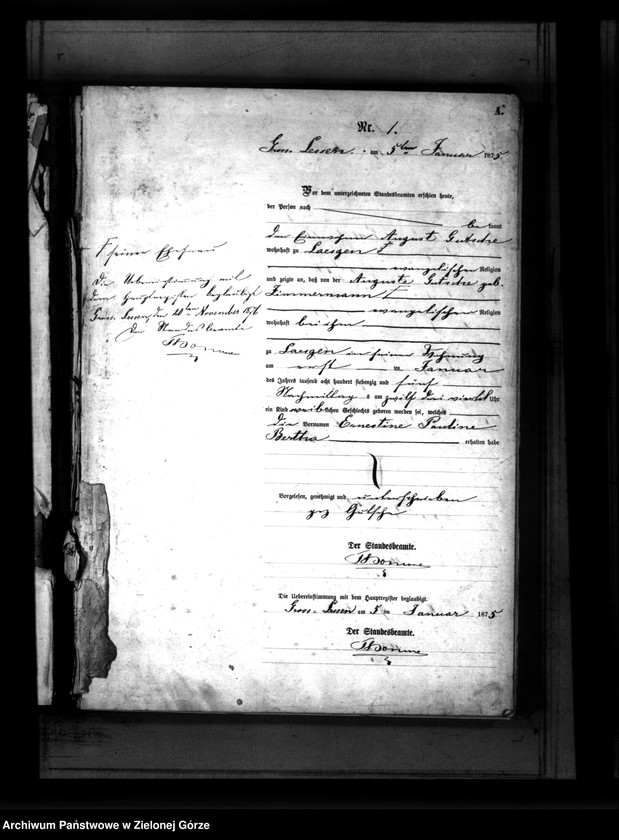 A.
Nr. 1.
Gross Lessen am 5ten Januar 1875
Vor dem unterzeichneten Standesbeamten erschien heute,
der Person nach
be kannt
der August Gutsche
wohnhaft zu Laesgen
evangelischer Religion
und zeigte an, daß von der Auguste Gutsche geb.
Zimmermann
evangelischer Religion
wohnhaft bei ihm
zu Laesgen in seiner Wohnung
am erst en Januar
des Jahres tausend acht hundert siebenzig und fünf
Nachmittag s um zwölf drei viertel Uhr
ein Kind weiblichen Geschlechts geboren worden sei, welches
die Vornamen Ernestine Pauline
Bertha erhalten habe
Vorgelesen, genehmigt und unterschrieben
gez Gutsche
Der Standesbeamte.
Die Uebereinstimmung mit dem Hauptregister beglaubigt.
Gross-Lessen am 5 ten Januar 1875
Der Standesbeamte.
seiner Ehefrau
Die Uebereinstimmung mit
dem Hauptregister beglaubigt
Gross. Lessen, den ten November 1876
Der Standesbeamte
Archiwum Państwowe w Zielonej Górze